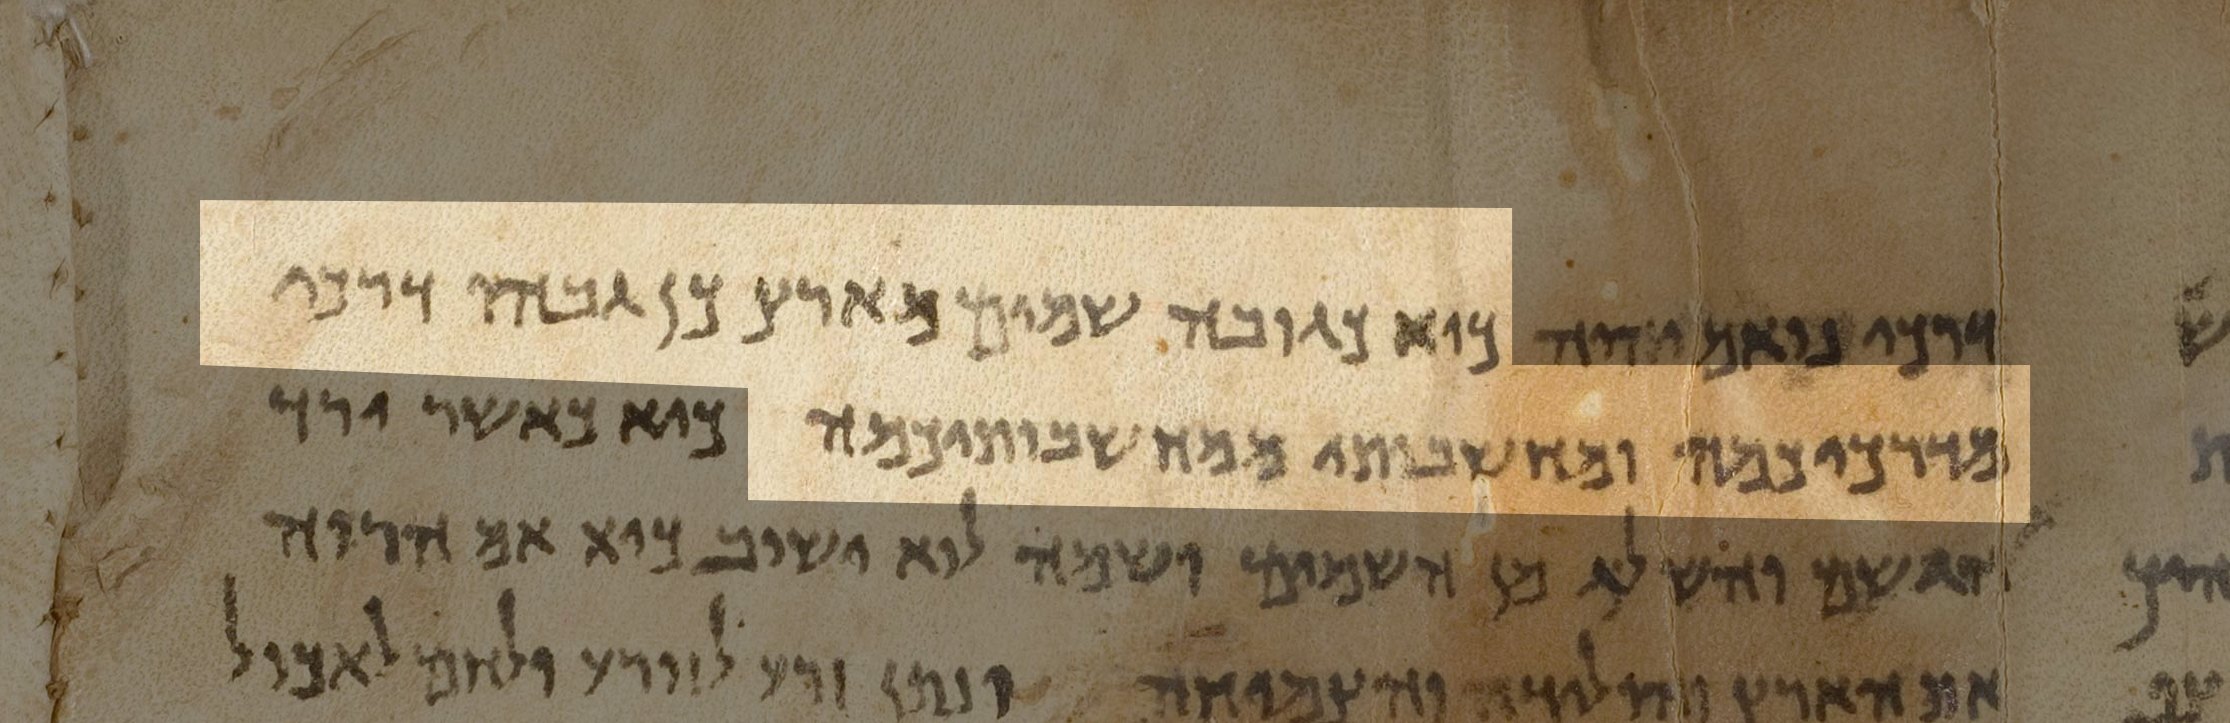 דרכי נואם יהוה כיא כגובה שמים מארץ כן גבהו דרכי
מדרכיכמה ומחשבותי ממחשבותיכמה כיא כאשר ירד
הגשם והשלג מן השמים ושמה לוא ישוב כיא אם הרוה
את הארץ והולידה והצמיחה ונתן זרע לזורע ולחם לאכול